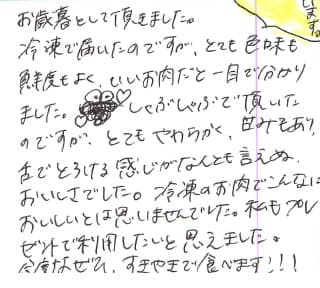 します。
お歳暮として頂きました。
冷凍で届いたのですが、とても色味も
鮮度もよく、いいお肉だと一目で分かり
ました。しゃぶしゃぶで頂いた
のですが、とてもやわらかく、甘みもあり、
舌でとろける感じがなんとも言えぬ
おいしさでした。冷凍のお肉でこんなに
おいしいとは思いませんでした。私もプレ
ゼントで利用したいと思えました。
今度はぜひ、すきやきで食べます!!!